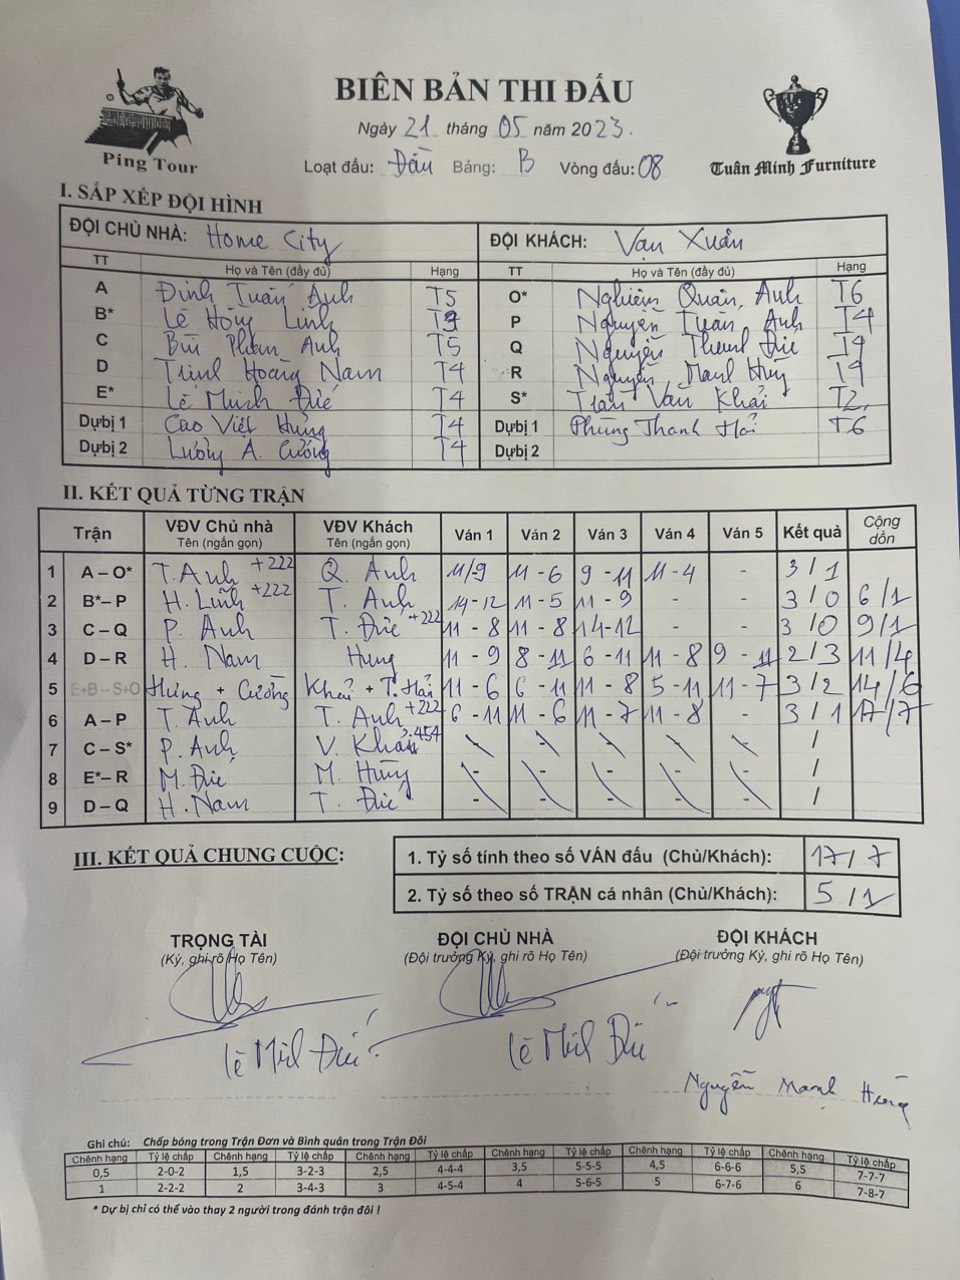 BIÊN BẢN THI ĐẤU
Ngày 21 tháng 05 năm 2023.
Ping Tour
Loạt đấu: Đầu Bảng: B Vòng đấu: 08
Tuân Minh Furniture
I. SẮP XẾP ĐỘI HÌNH
ĐỘI CHỦ NHÀ: Home City ĐỘI KHÁCH: Vạn Xuân
TT Họ và Tên (đầy đủ) Hạng TT Họ và Tên (đầy đủ) Hạng
A Đinh Tuấn Anh T5 O* Nghiêm Quân Anh T6
B* Lê Hồng Linh P Nguyễn Tuấn Anh T4
C Bùi Phạm Anh T5 Q Nguyễn Thanh Đức
D Trịnh Hoàng Nam T4 R Nguyễn Mạnh Hùng
E* Lê Minh Đức T4 S* Trần Văn Khải T2
Dự bị 1 Cao Việt Hưng T4 Dự bị 1 Phùng Thanh Hải T6
Dự bị 2 Lương A. Cường T4 Dự bị 2
II. KẾT QUẢ TỪNG TRẬN
Trận VĐV Chủ nhà Tên (ngắn gọn) VĐV Khách Tên (ngắn gọn) Ván 1 Ván 2 Ván 3 Ván 4 Ván 5 Kết quả Cộng dồn
1 A – O* T. Anh +222 Q. Anh 11/9 11 - 6 9 - 11 11 - 4 - 3 / 1
2 B* – P H. Linh +222 T. Anh 14 - 12 11 - 5 11 - 9 - - 3 / 0 6 / 1
3 C – Q P. Anh T. Đức +222 11 - 8 11 - 8 14 - 12 - - 3 / 0 9 / 1
4 D – R H. Nam Hùng 11 - 9 8 - 11 6 - 11 11 - 8 9 - 11 2 / 3 11 / 4
5 E+B – S+O Hưng + Cường Khải + T. Hải 11 - 6 6 - 11 11 - 8 5 - 11 11 - 7 3 / 2 14 / 6
6 A – P T. Anh T. Anh +222 6 - 11 11 - 6 11 - 7 11 - 8 - 3 / 1 17 / 7
7 C – S* P. Anh V. Khải 454 - - - - - /
8 E* – R M. Đức M. Hùng - - - - - /
9 D – Q H. Nam T. Đức - - - - - /
III. KẾT QUẢ CHUNG CUỘC:
1. Tỷ số tính theo số VÁN đấu (Chủ/Khách): 17 / 7
2. Tỷ số theo số TRẬN cá nhân (Chủ/Khách): 5 / 1
TRỌNG TÀI ĐỘI CHỦ NHÀ ĐỘI KHÁCH
(Ký, ghi rõ Họ Tên) (Đội trưởng Ký, ghi rõ Họ Tên) (Đội trưởng Ký, ghi rõ Họ Tên)
Lê Minh Đức Lê Minh Đức
Nguyễn Mạnh Hùng
Ghi chú: Chấp bóng trong Trận Đơn và Bình quân trong Trận Đôi
Chênh hạng Tỷ lệ chấp Chênh hạng Tỷ lệ chấp Chênh hạng Tỷ lệ chấp Chênh hạng Tỷ lệ chấp Chênh hạng Tỷ lệ chấp Chênh hạng Tỷ lệ chấp
0,5 2-0-2 1,5 3-2-3 2,5 4-4-4 3,5 5-5-5 4,5 6-6-6 5,5 7-7-7
1 2-2-2 2 3-4-3 3 4-5-4 4 5-6-5 5 6-7-6 6 7-8-7
* Dự bị chỉ có thể vào thay 2 người trong đánh trận đôi !